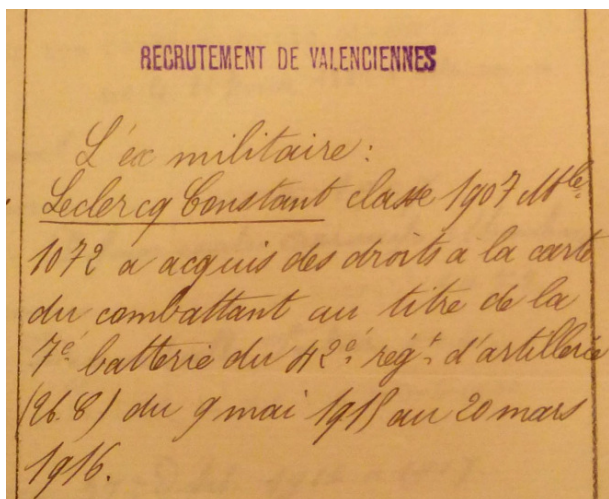 RECRUTEMENT DE VALENCIENNES
L'ex militaire :
Leclercq Constant classe 1907 Mle
1072 a acquis des droits à la carte
du combattant au titre de la
7e batterie du 42e régt d'artillerie
(26.8) du 9 mai 1915 au 20 mars
1916.